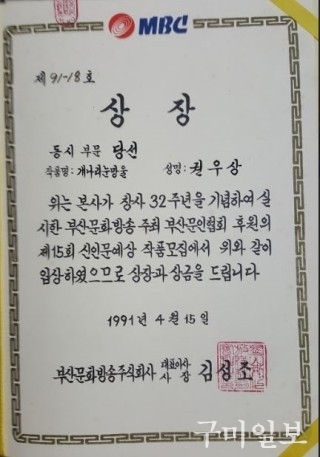 MBC
제 91-18호
상장
동시 부문 당선
작품명: 개나리눈망울 성명: 권우상
위는 본사가 창사 32주년을 기념하여 실
시한 부산문화방송 주최 부산문인협회 후원의
제15회 신인문예상 작품모집에서 위와 같이
입상하였으므로 상장과 상금을 드립니다
1991년 4월 15일
부산문화방송주식회사 대표이사 사장 김성조
구미일보